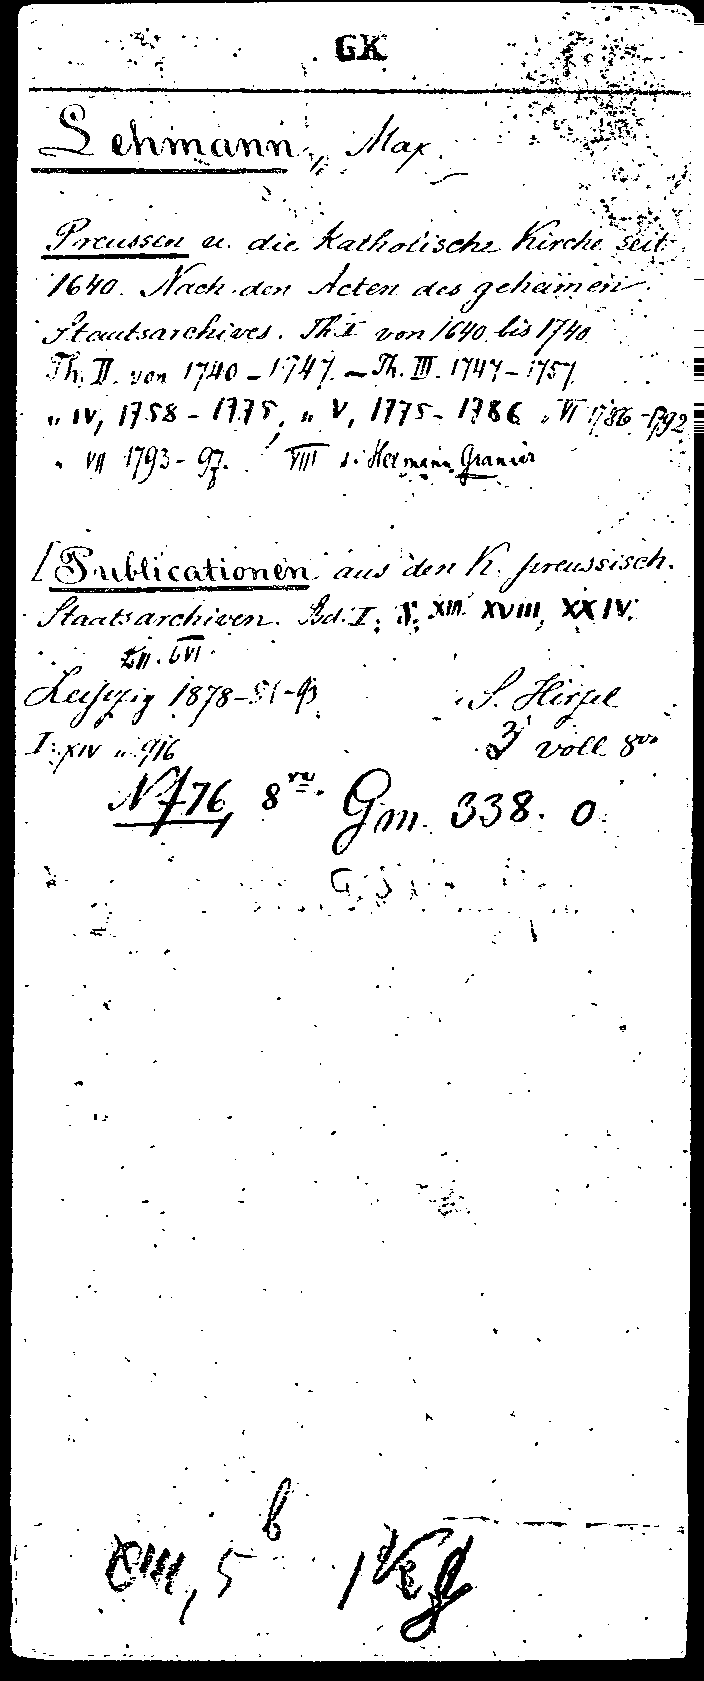 GK
Lehmann, Max.
Preussen u. die katholische Kirche seit
1640. Nach den Acten des geheimen
Staatsarchives. Th. I von 1640 bis 1740
Th. II. von 1740-1747. - Th. III. 1747-1757
„ IV, 1758-1775, „ V, 1775-1786 „ VI 1786-1792
„ VII 1793-97. VIII v. Hermann Granier
[Publicationen aus den K. preussisch.
Staatsarchiven. Bd. I. X. XIII. XVIII, XXIV.
LVI.
Leipzig 1878-81-93 S. Hirzel
I: XIV u. 916 3 voll 8vo
N 776, 8vo. Gm. 338. 0
XIII, 5 b